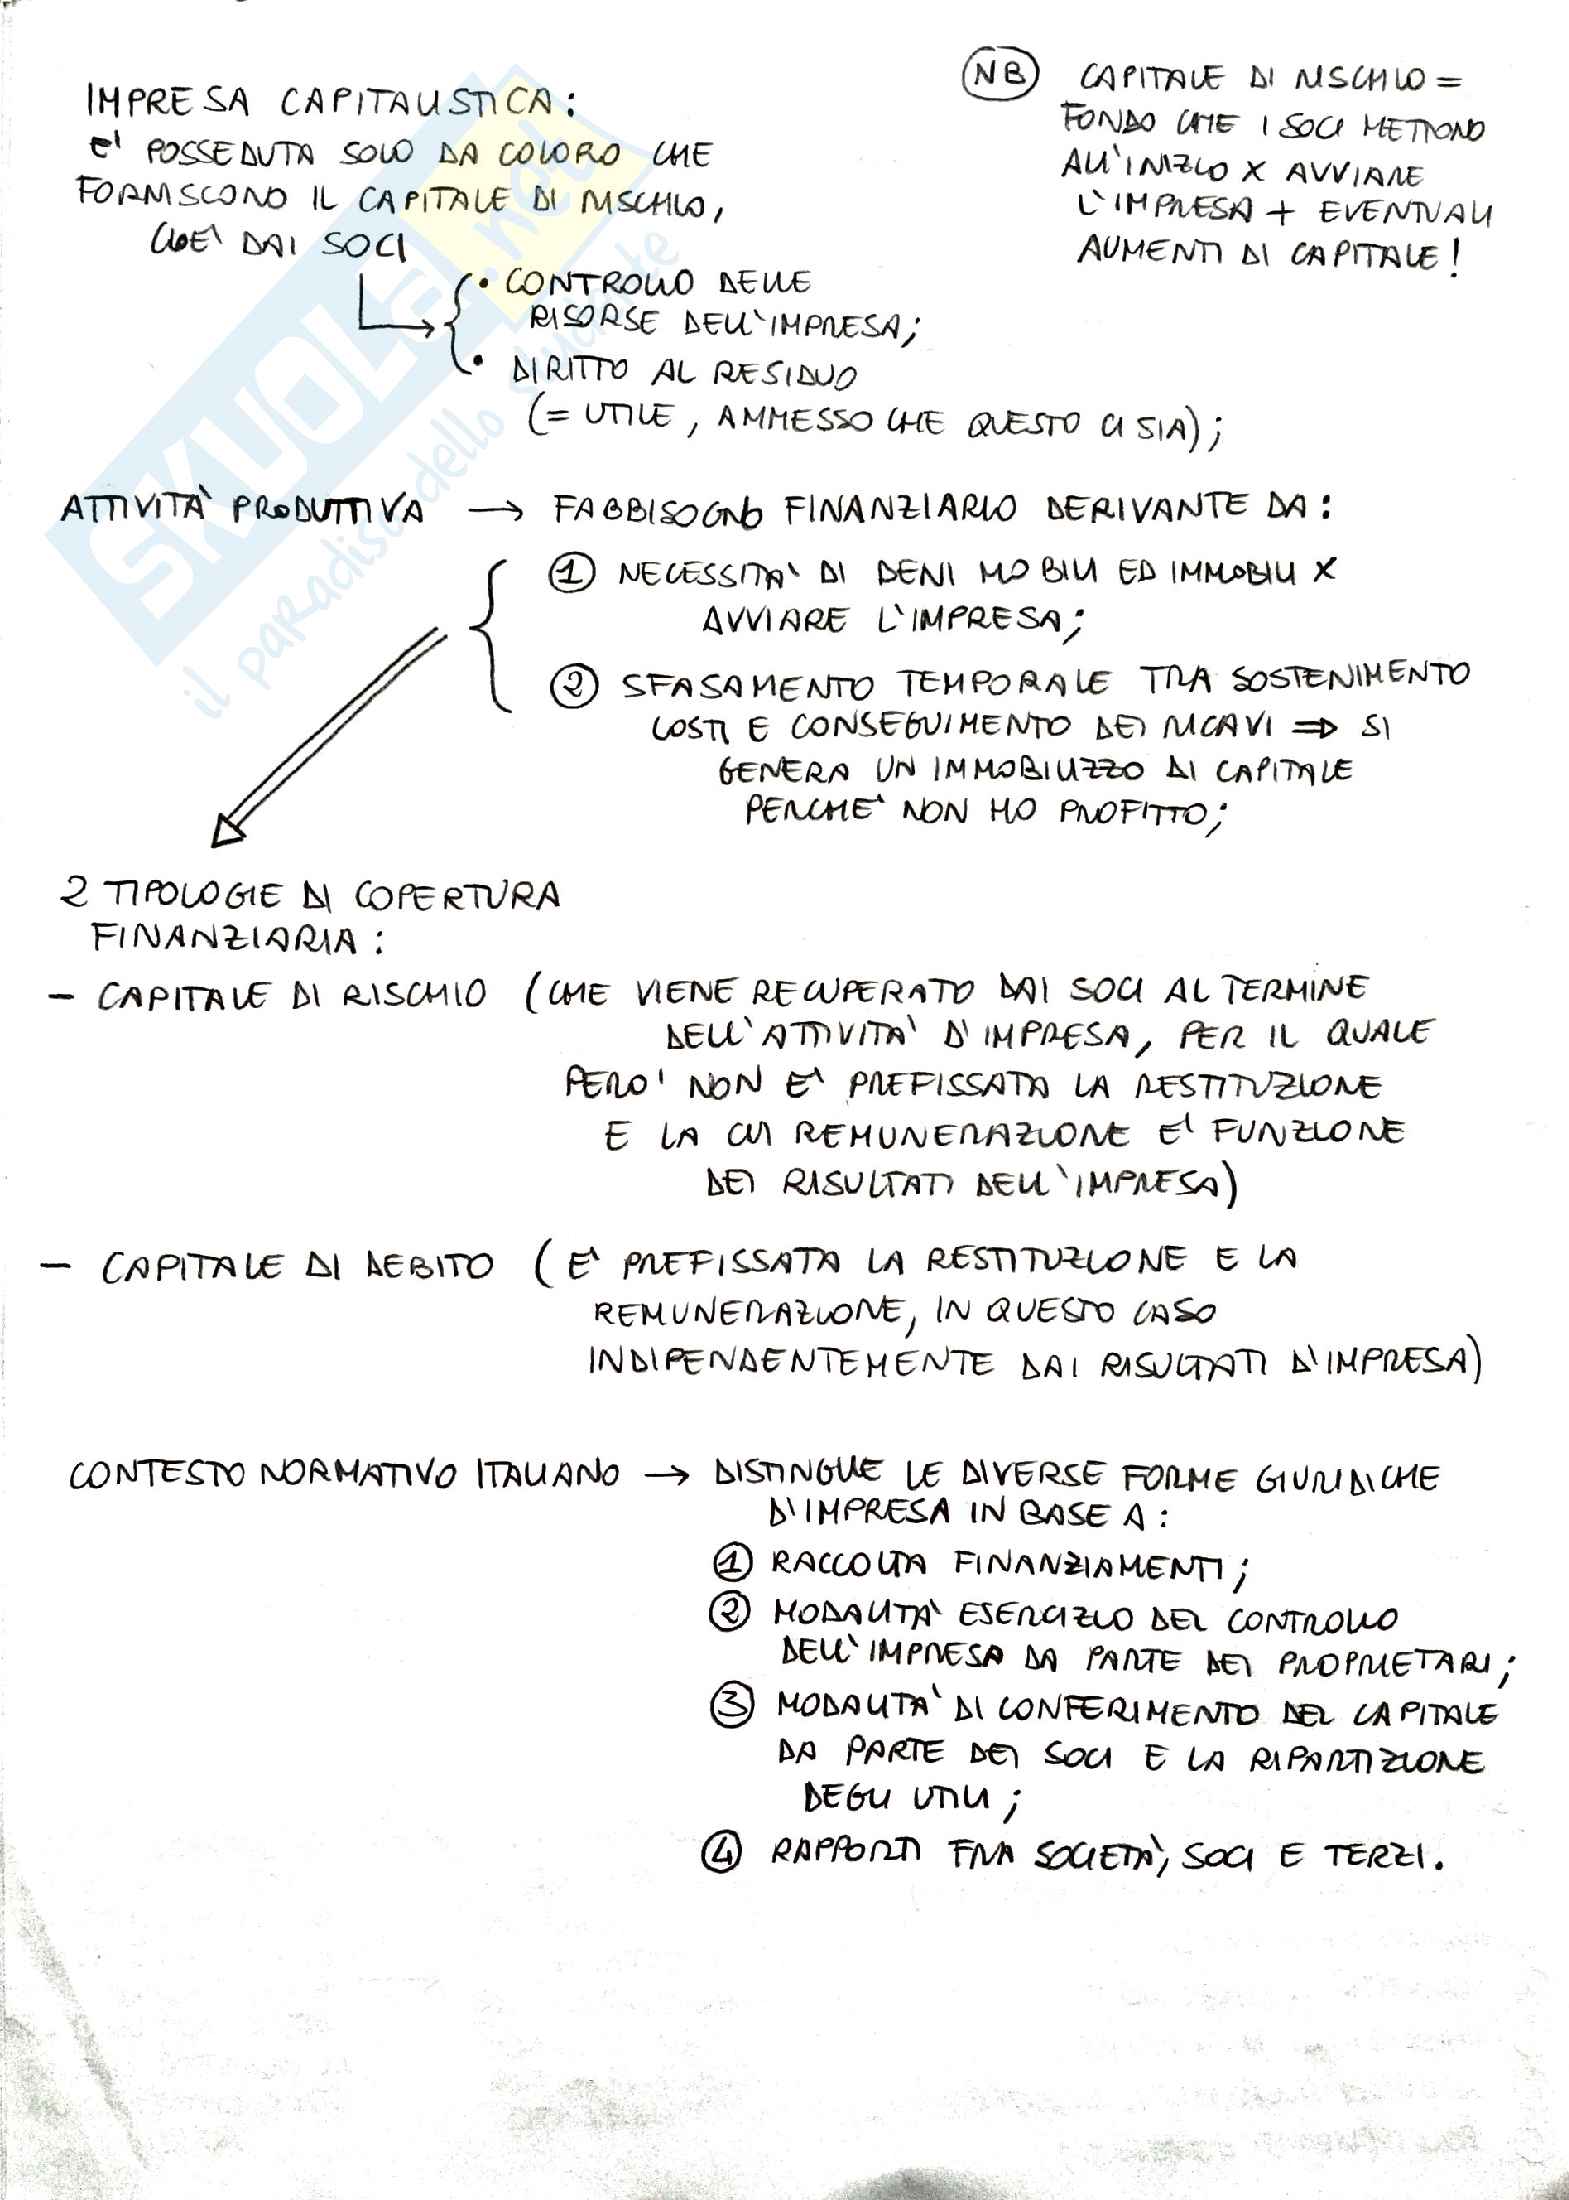 IMPRESA CAPITALISTICA:
E' POSSEDUTA SOLO DA COLORO CHE
FORNISCONO IL CAPITALE DI RISCHIO,
CIOE' DAI SOCI
NB CAPITALE DI RISCHIO =
FONDO CHE I SOCI METTONO
ALL'INIZIO X AVVIARE
L'IMPRESA + EVENTUALI
AUMENTI DI CAPITALE!
• CONTROLLO DELLE
RISORSE DELL'IMPRESA;
• DIRITTO AL RESIDUO
(= UTILE, AMMESSO CHE QUESTO CI SIA);
ATTIVITA' PRODUTTIVA → FABBISOGNO FINANZIARIO DERIVANTE DA:
1 NECESSITA' DI BENI MOBILI ED IMMOBILI X
AVVIARE L'IMPRESA;
2 SFASAMENTO TEMPORALE TRA SOSTENIMENTO
COSTI E CONSEGUIMENTO DEI RICAVI ⇒ SI
GENERA UN IMMOBILIZZO DI CAPITALE
PERCHE' NON HO PROFITTO;
2 TIPOLOGIE DI COPERTURA
FINANZIARIA:
- CAPITALE DI RISCHIO (CHE VIENE RECUPERATO DAI SOCI AL TERMINE
DELL'ATTIVITA' D'IMPRESA, PER IL QUALE
PERO' NON E' PREFISSATA LA RESTITUZIONE
E LA CUI REMUNERAZIONE E' FUNZIONE
DEI RISULTATI DELL'IMPRESA)
- CAPITALE DI DEBITO (E' PREFISSATA LA RESTITUZIONE E LA
REMUNERAZIONE, IN QUESTO CASO
INDIPENDENTEMENTE DAI RISULTATI D'IMPRESA)
CONTESTO NORMATIVO ITALIANO → DISTINGUE LE DIVERSE FORME GIURIDICHE
D'IMPRESA IN BASE A:
1 RACCOLTA FINANZIAMENTI;
2 MODALITA' ESERCIZIO DEL CONTROLLO
DELL'IMPRESA DA PARTE DEI PROPRIETARI;
3 MODALITA' DI CONFERIMENTO DEL CAPITALE
DA PARTE DEI SOCI E LA RIPARTIZIONE
DEGLI UTILI;
4 RAPPORTI FRA SOCIETA', SOCI E TERZI.
SKUOLA.net
il paradiso dello studente